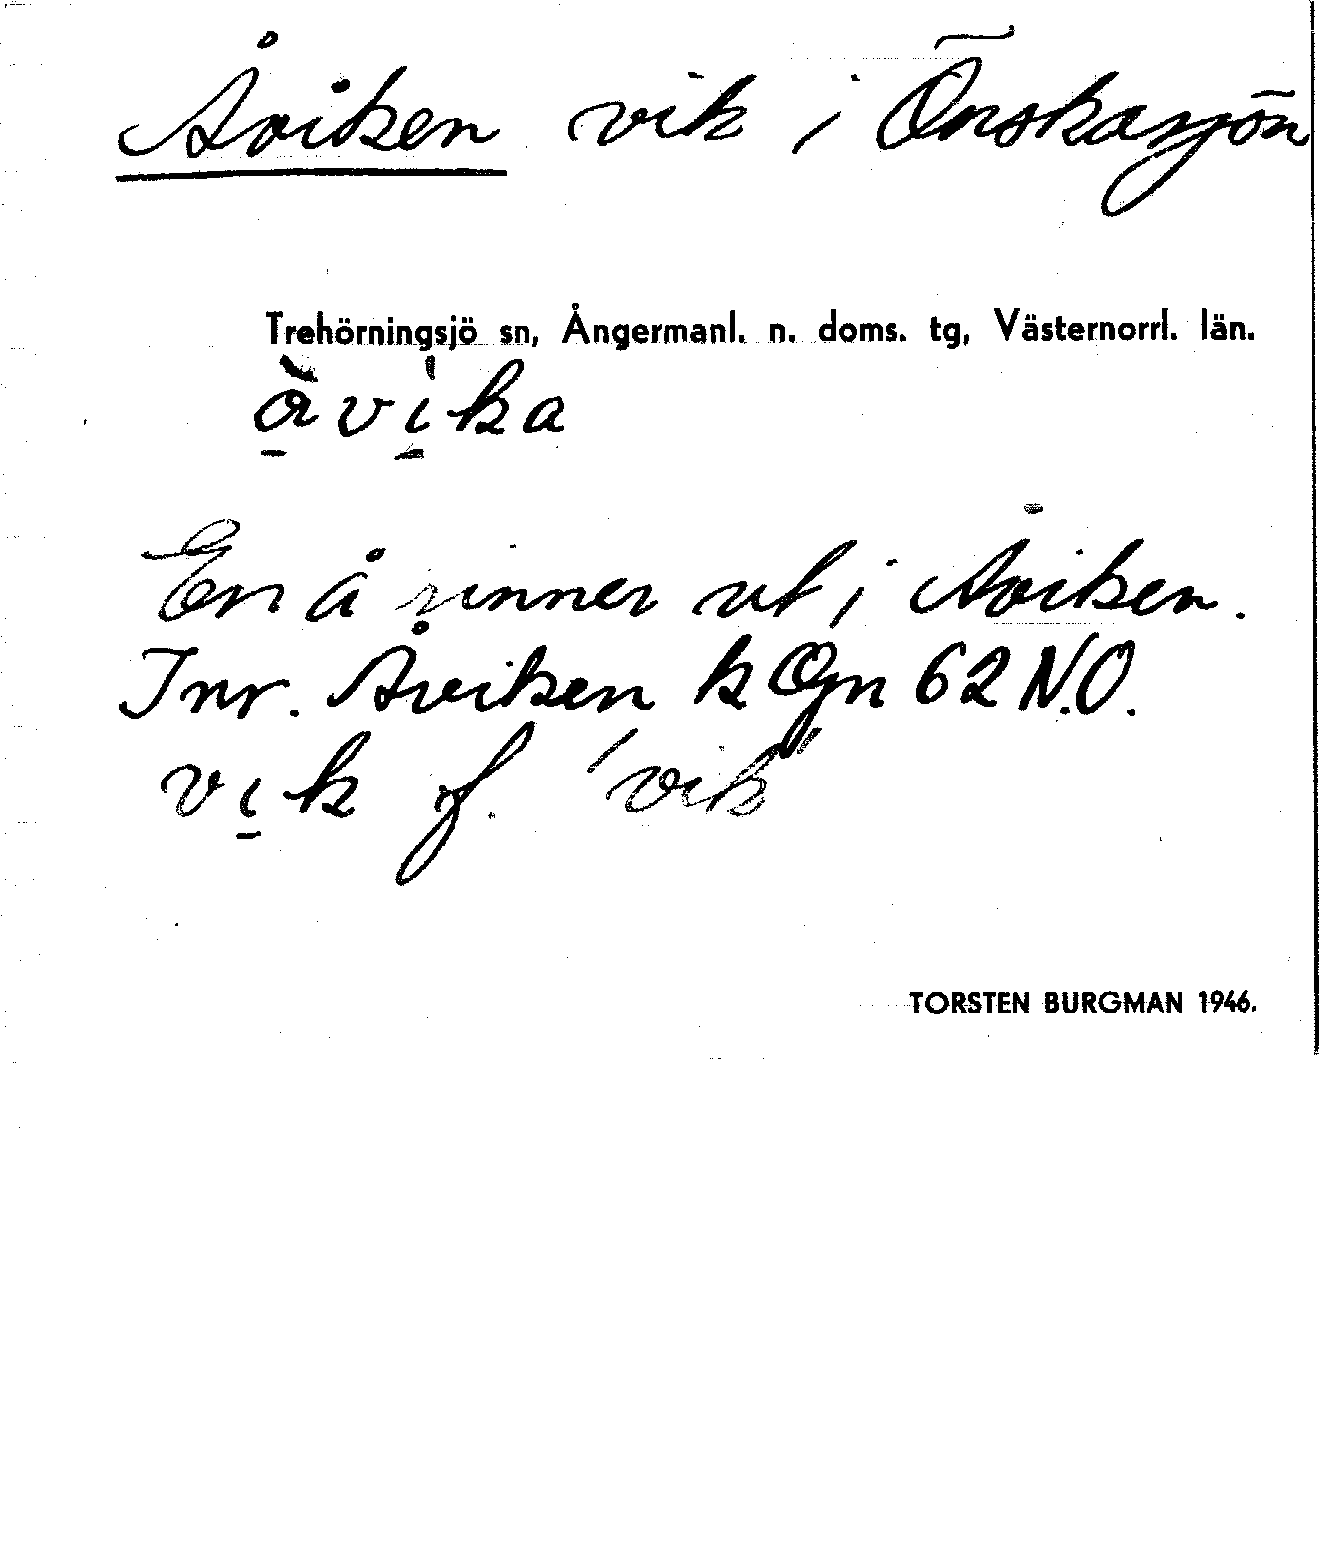 Åviken vik i Önskasjön
Trehörningsjö sn, Ångermanl. n. doms. tg, Västernorrl. län.
å̀vi̍ka
En å rinner ut i Åviken.
Inr. Åviken k Ögn 62 N.O.
vi̲k f. "vik"
TORSTEN BURGMAN 1946.